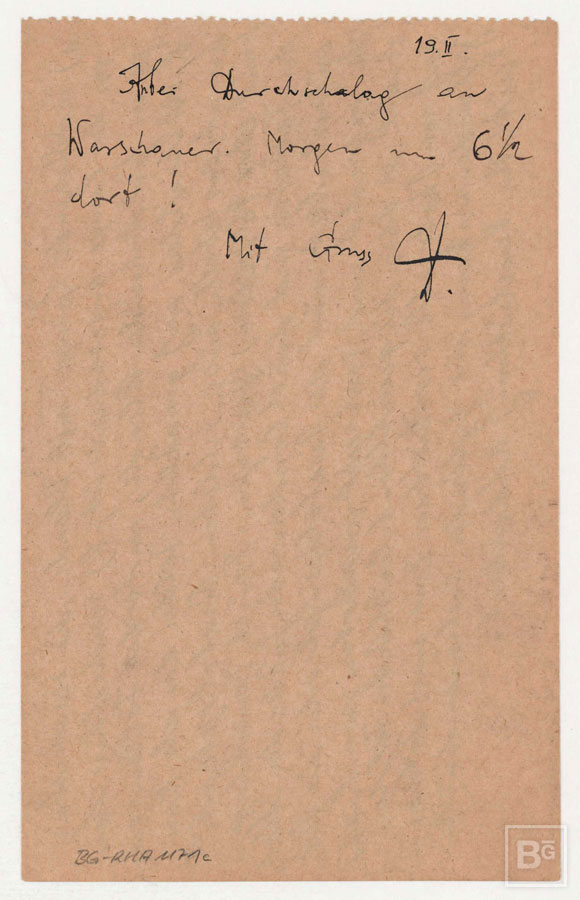 19. II.
Anbei Durchschalag an
Warschauer. Morgen um 6 1/2
dort !
Mit Gruss
BG-RHA 1171c
BG